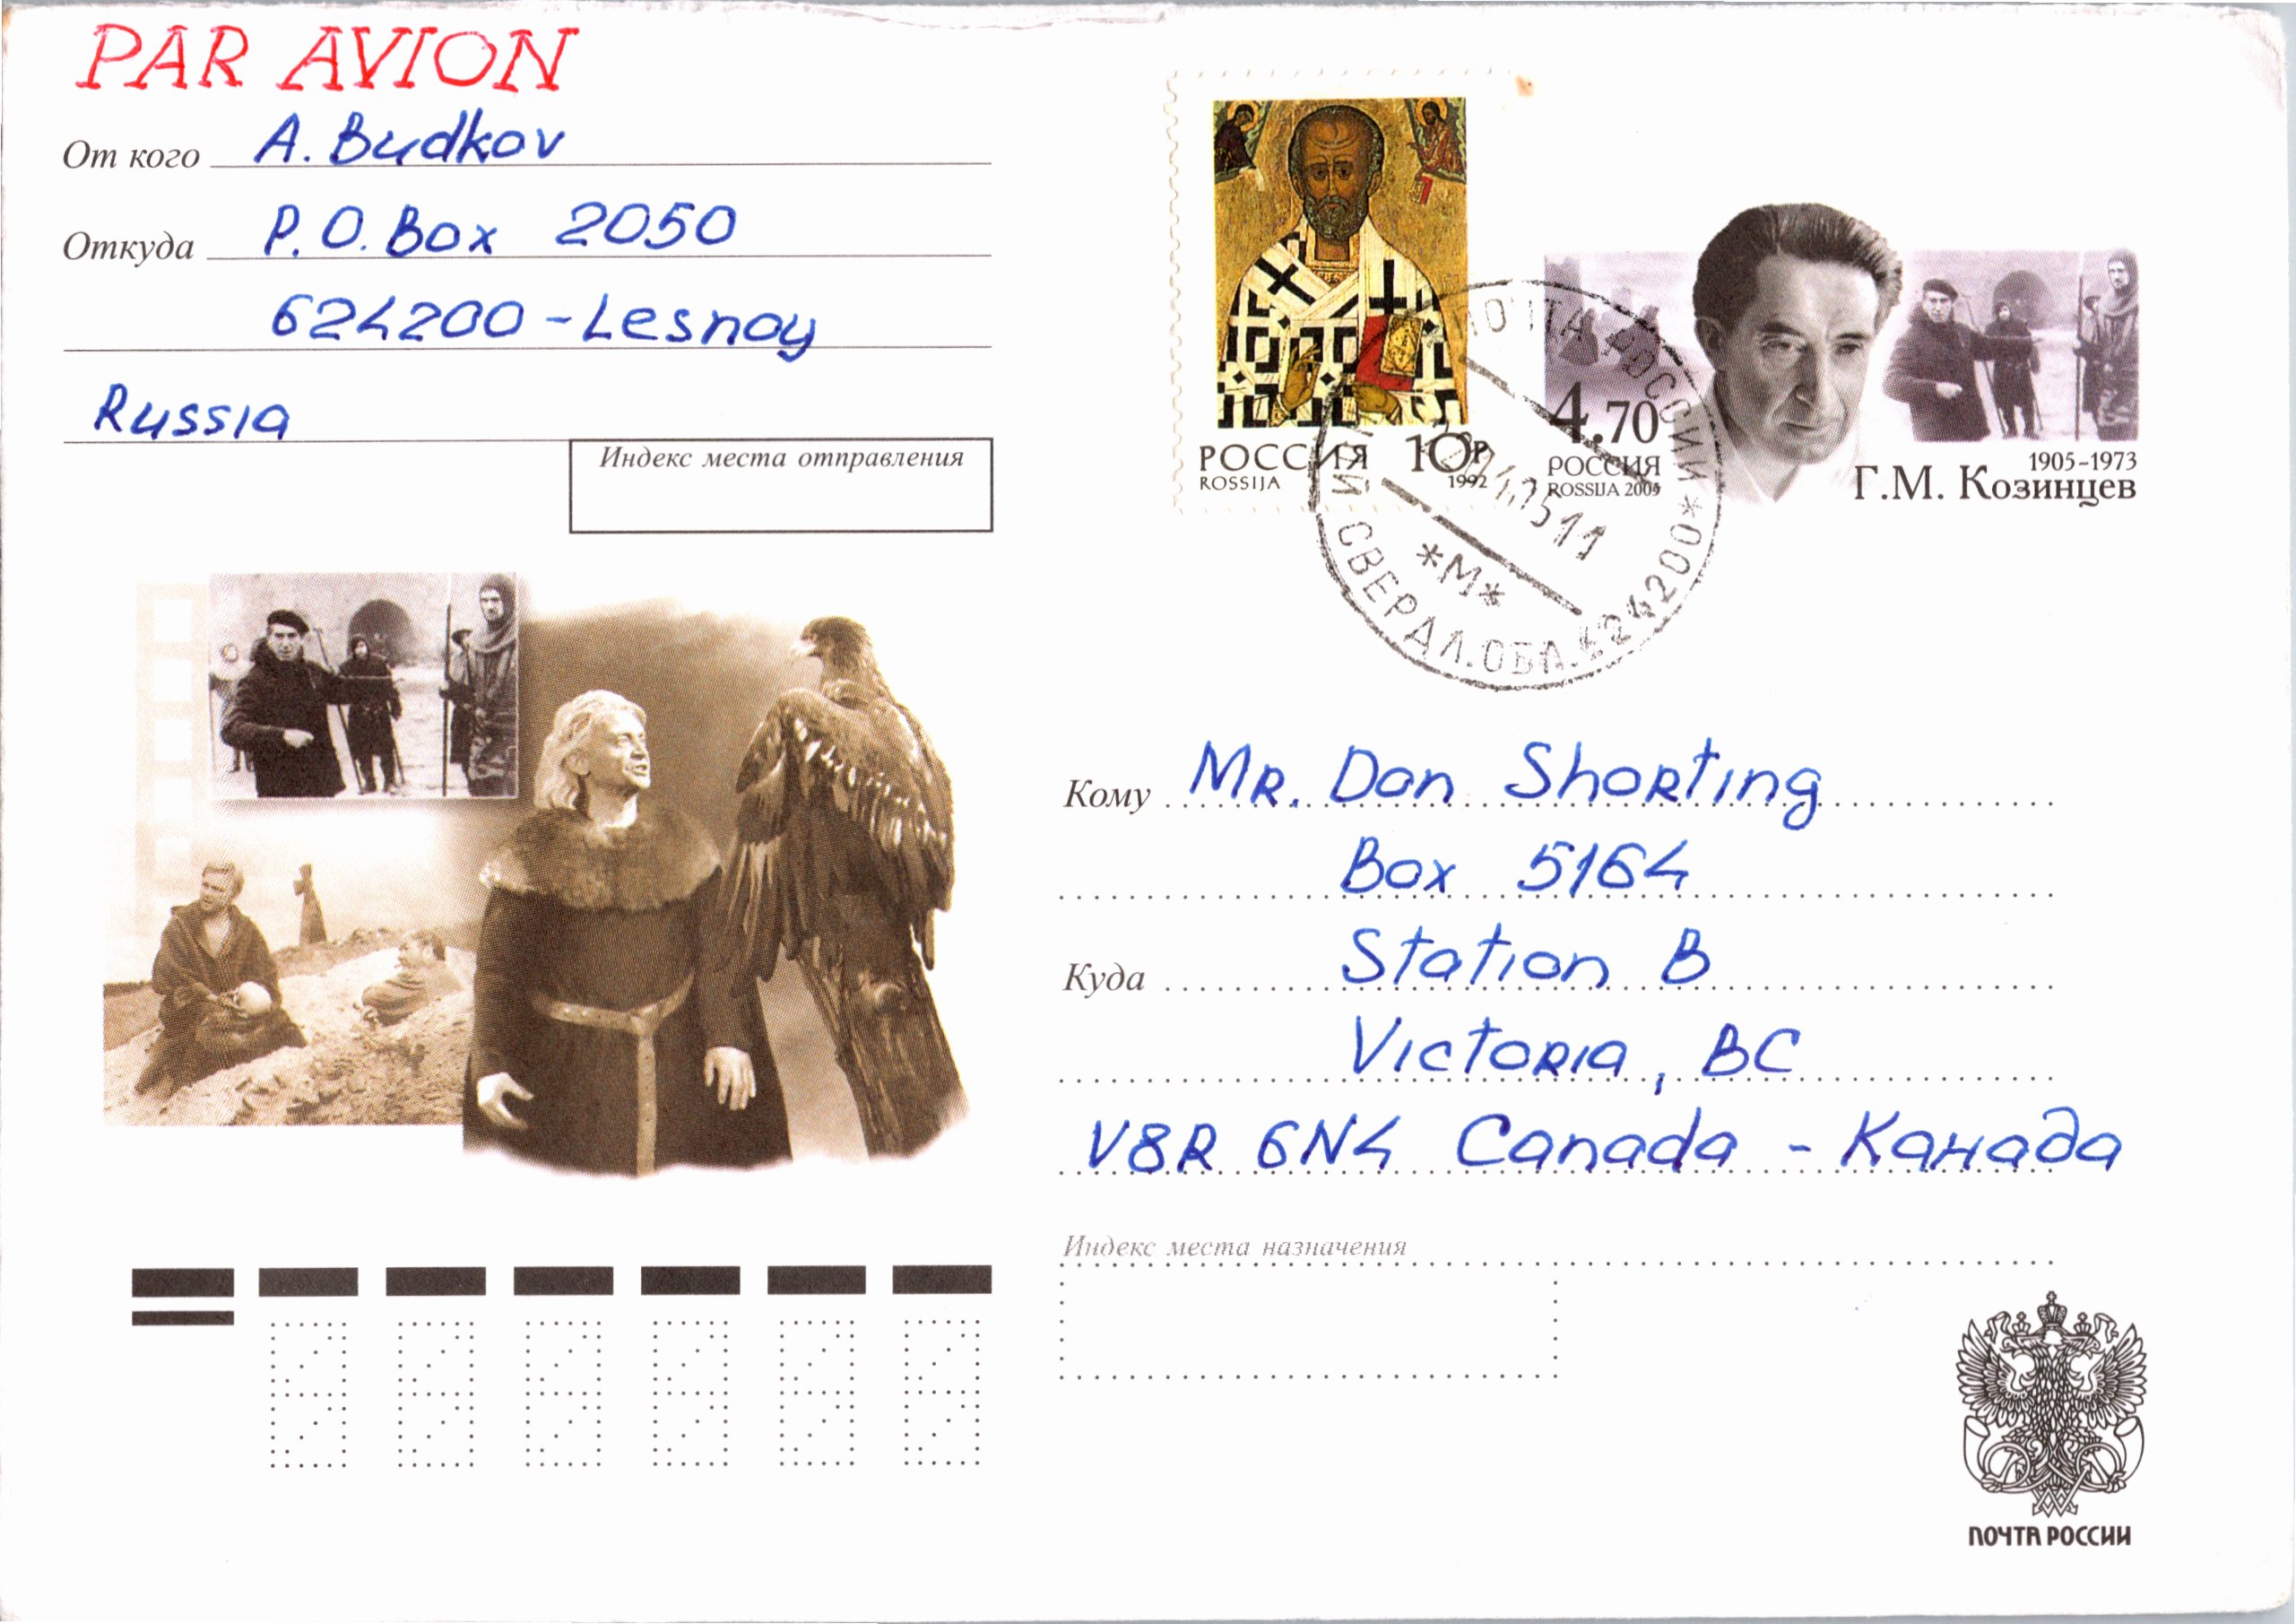 PAR AVION
От кого A. Budkov
Откуда P.O. Box 2050
624200 - Lesnoy
Russia
Индекс места отправления
РОССИЯ 10р
ROSSIJA 1992
4.70
РОССИЯ
ROSSIJA 2005
1905-1973
Г.М. Козинцев
ПОЧТА РОССИИ
*М*
СВЕРДЛ. ОБЛ. 624200*
Кому Mr. Don Shorting
Box 5164
Куда Station B
Victoria, BC
V8R 6N4 Canada - Канада
Индекс места назначения
ПОЧТА РОССИИ